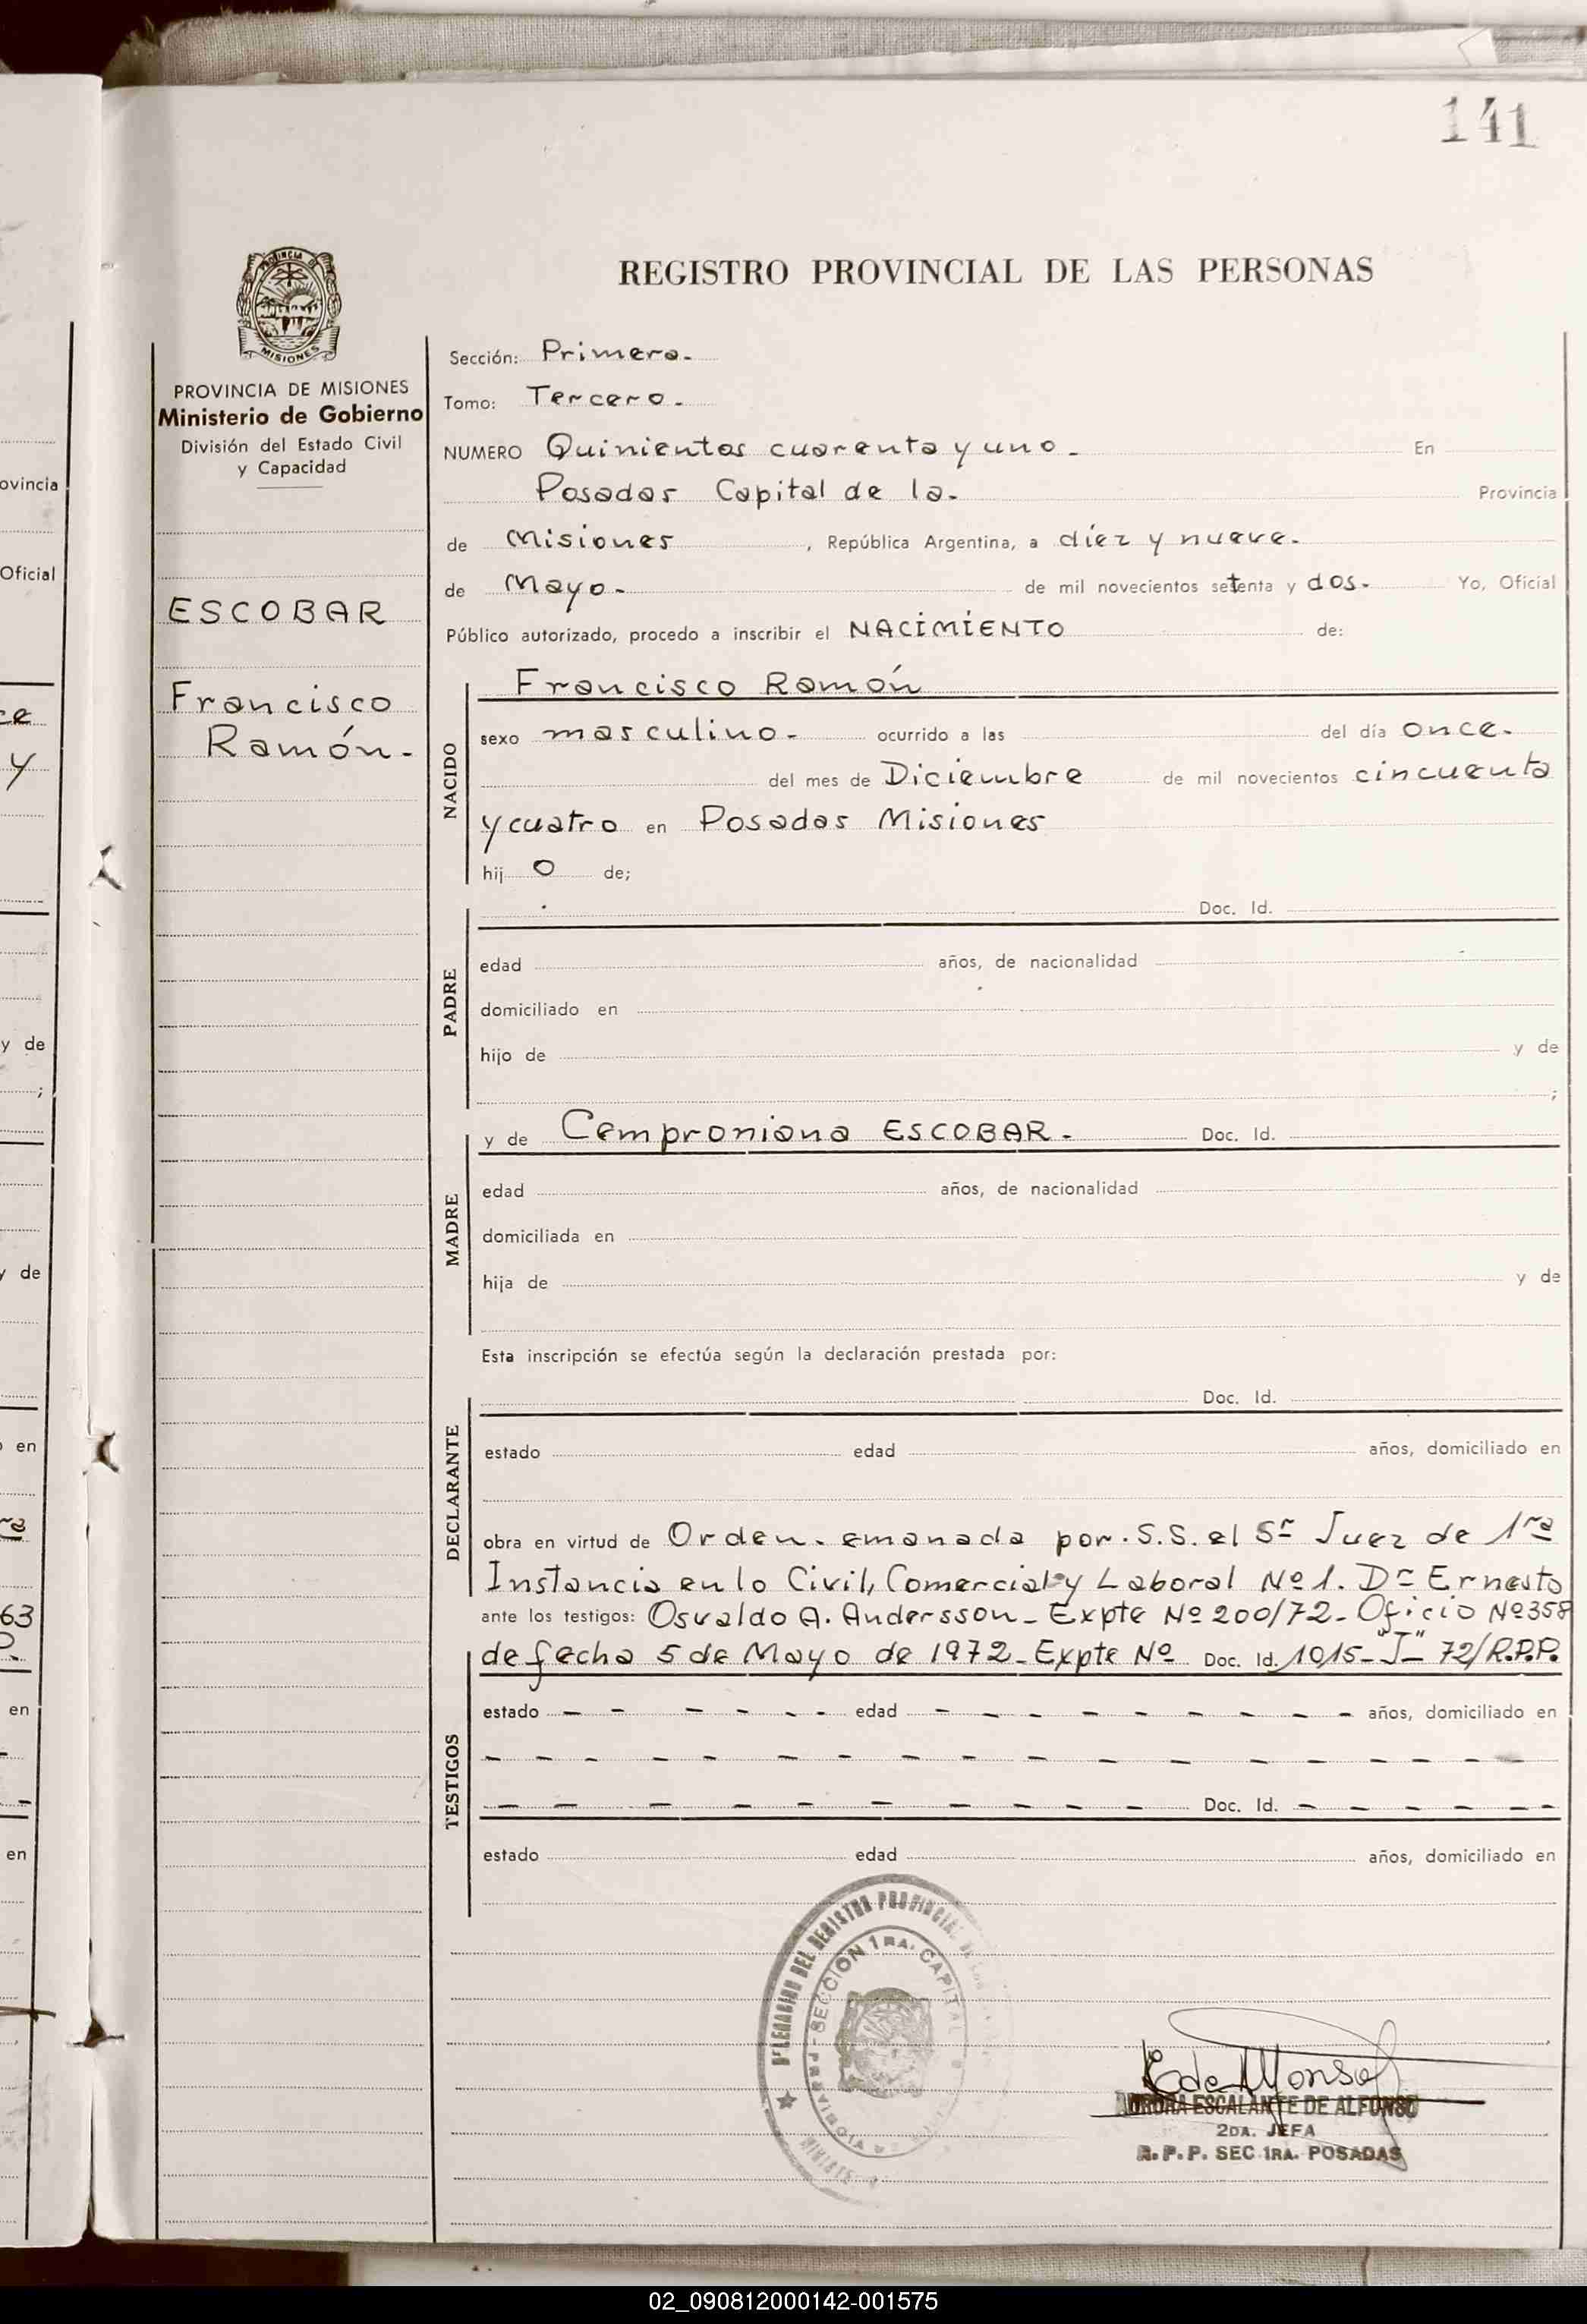 141
PROVINCIA DE
MISIONES
PROVINCIA DE MISIONES
Ministerio de Gobierno
División del Estado Civil
y Capacidad
ESCOBAR
Francisco
Ramón.
REGISTRO PROVINCIAL DE LAS PERSONAS
Sección: Primera.
Tomo: Tercero.
NUMERO Quinientos cuarenta y uno. En
Posadas Capital de la. Provincia
de Misiones , República Argentina, a diez y nueve.
de Mayo. de mil novecientos setenta y dos. Yo, Oficial
Público autorizado, procedo a inscribir el NACIMIENTO de:
NACIDO
Francisco Ramón
sexo masculino. ocurrido a las del día once.
del mes de Diciembre de mil novecientos cincuenta
y cuatro en Posadas Misiones
hij o de;
PADRE
Doc. Id.
edad años, de nacionalidad
domiciliado en
hijo de y de
;
MADRE
y de Cemproniana ESCOBAR. Doc. Id.
edad años, de nacionalidad
domiciliada en
hija de y de
Esta inscripción se efectúa según la declaración prestada por:
DECLARANTE
Doc. Id.
estado edad años, domiciliado en
obra en virtud de Orden. emanada por. S.S. el Sr Juez de 1ra
Instancia en lo Civil, Comercial y Laboral Nº 1. Dr Ernesto
ante los testigos: Osvaldo A. Andersson_ Expte Nº 200/72_ Oficio Nº 358
de fecha 5 de Mayo de 1972_ Expte Nº Doc. Id. 1015-"J"- 72/R.P.P.
TESTIGOS
estado - - - - - - edad - - - - - - - - - años, domiciliado en
- - - - - - - - - - - - - - - - -
- - - - - - - - - - - Doc. Id. - - - - - -
estado edad años, domiciliado en
DEL REGISTRO PROVINCIAL
SECCION 1RA. CAPITAL
AURORA ESCALANTE DE ALFONSO
2DA. JEFA
R.P.P. SEC 1RA. POSADAS
ovincia
Oficial
ce
y
y de
;
y de
en
ra
63
en
en
02_090812000142-001575